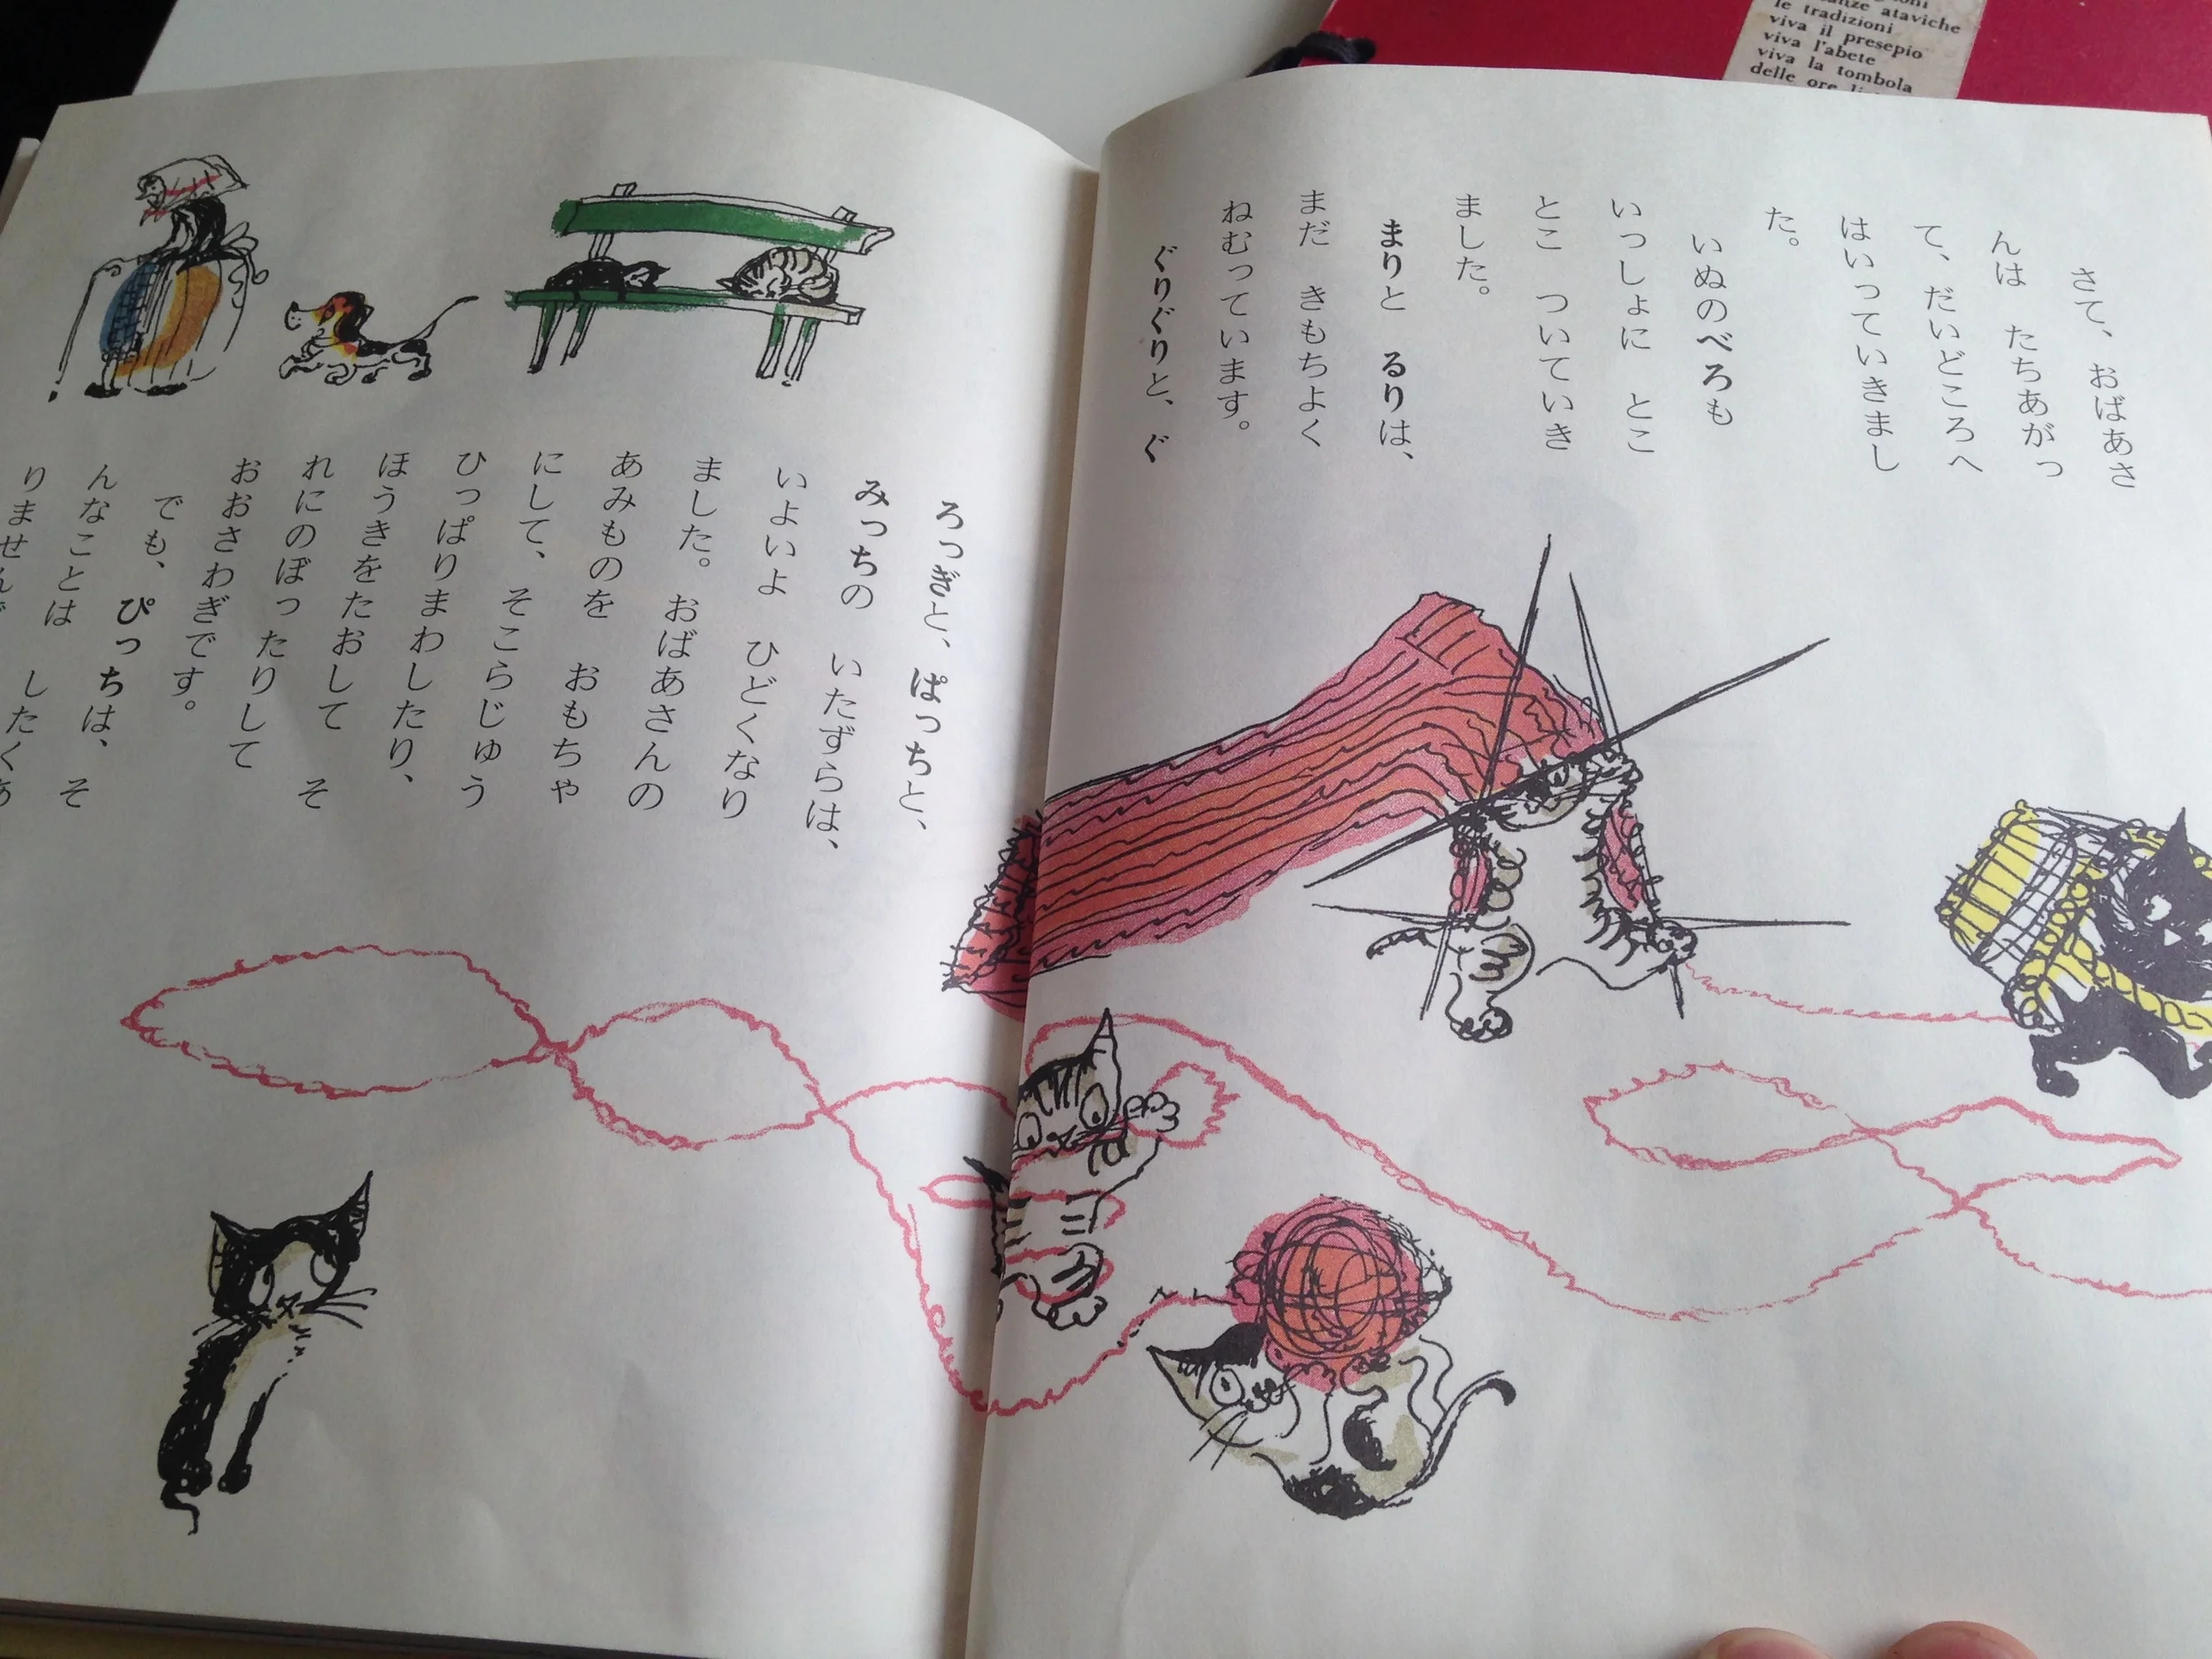 さて、おばあさ
んは たちあがっ
て、だいどころへ
はいっていきまし
た。
いぬのべろも
いっしょに とこ
とこ ついていき
ました。
まりと るりは、
まだ きもちよく
ねむっています。
ぐりぐりと、ぐ
ろっぎと、ぱっちと、
みっちの いたずらは、
いよいよ ひどくなり
ました。おばあさんの
あみものを おもちゃ
にして、そこらじゅう
ひっぱりまわしたり、
ほうきをたおして そ
れにのぼったりして
おおさわぎです。
でも、ぴっちは、そ
んなことは したくあ
りません
le tradizioni
viva il presepio
viva l'abete
viva la tombola
delle ore
ataviche